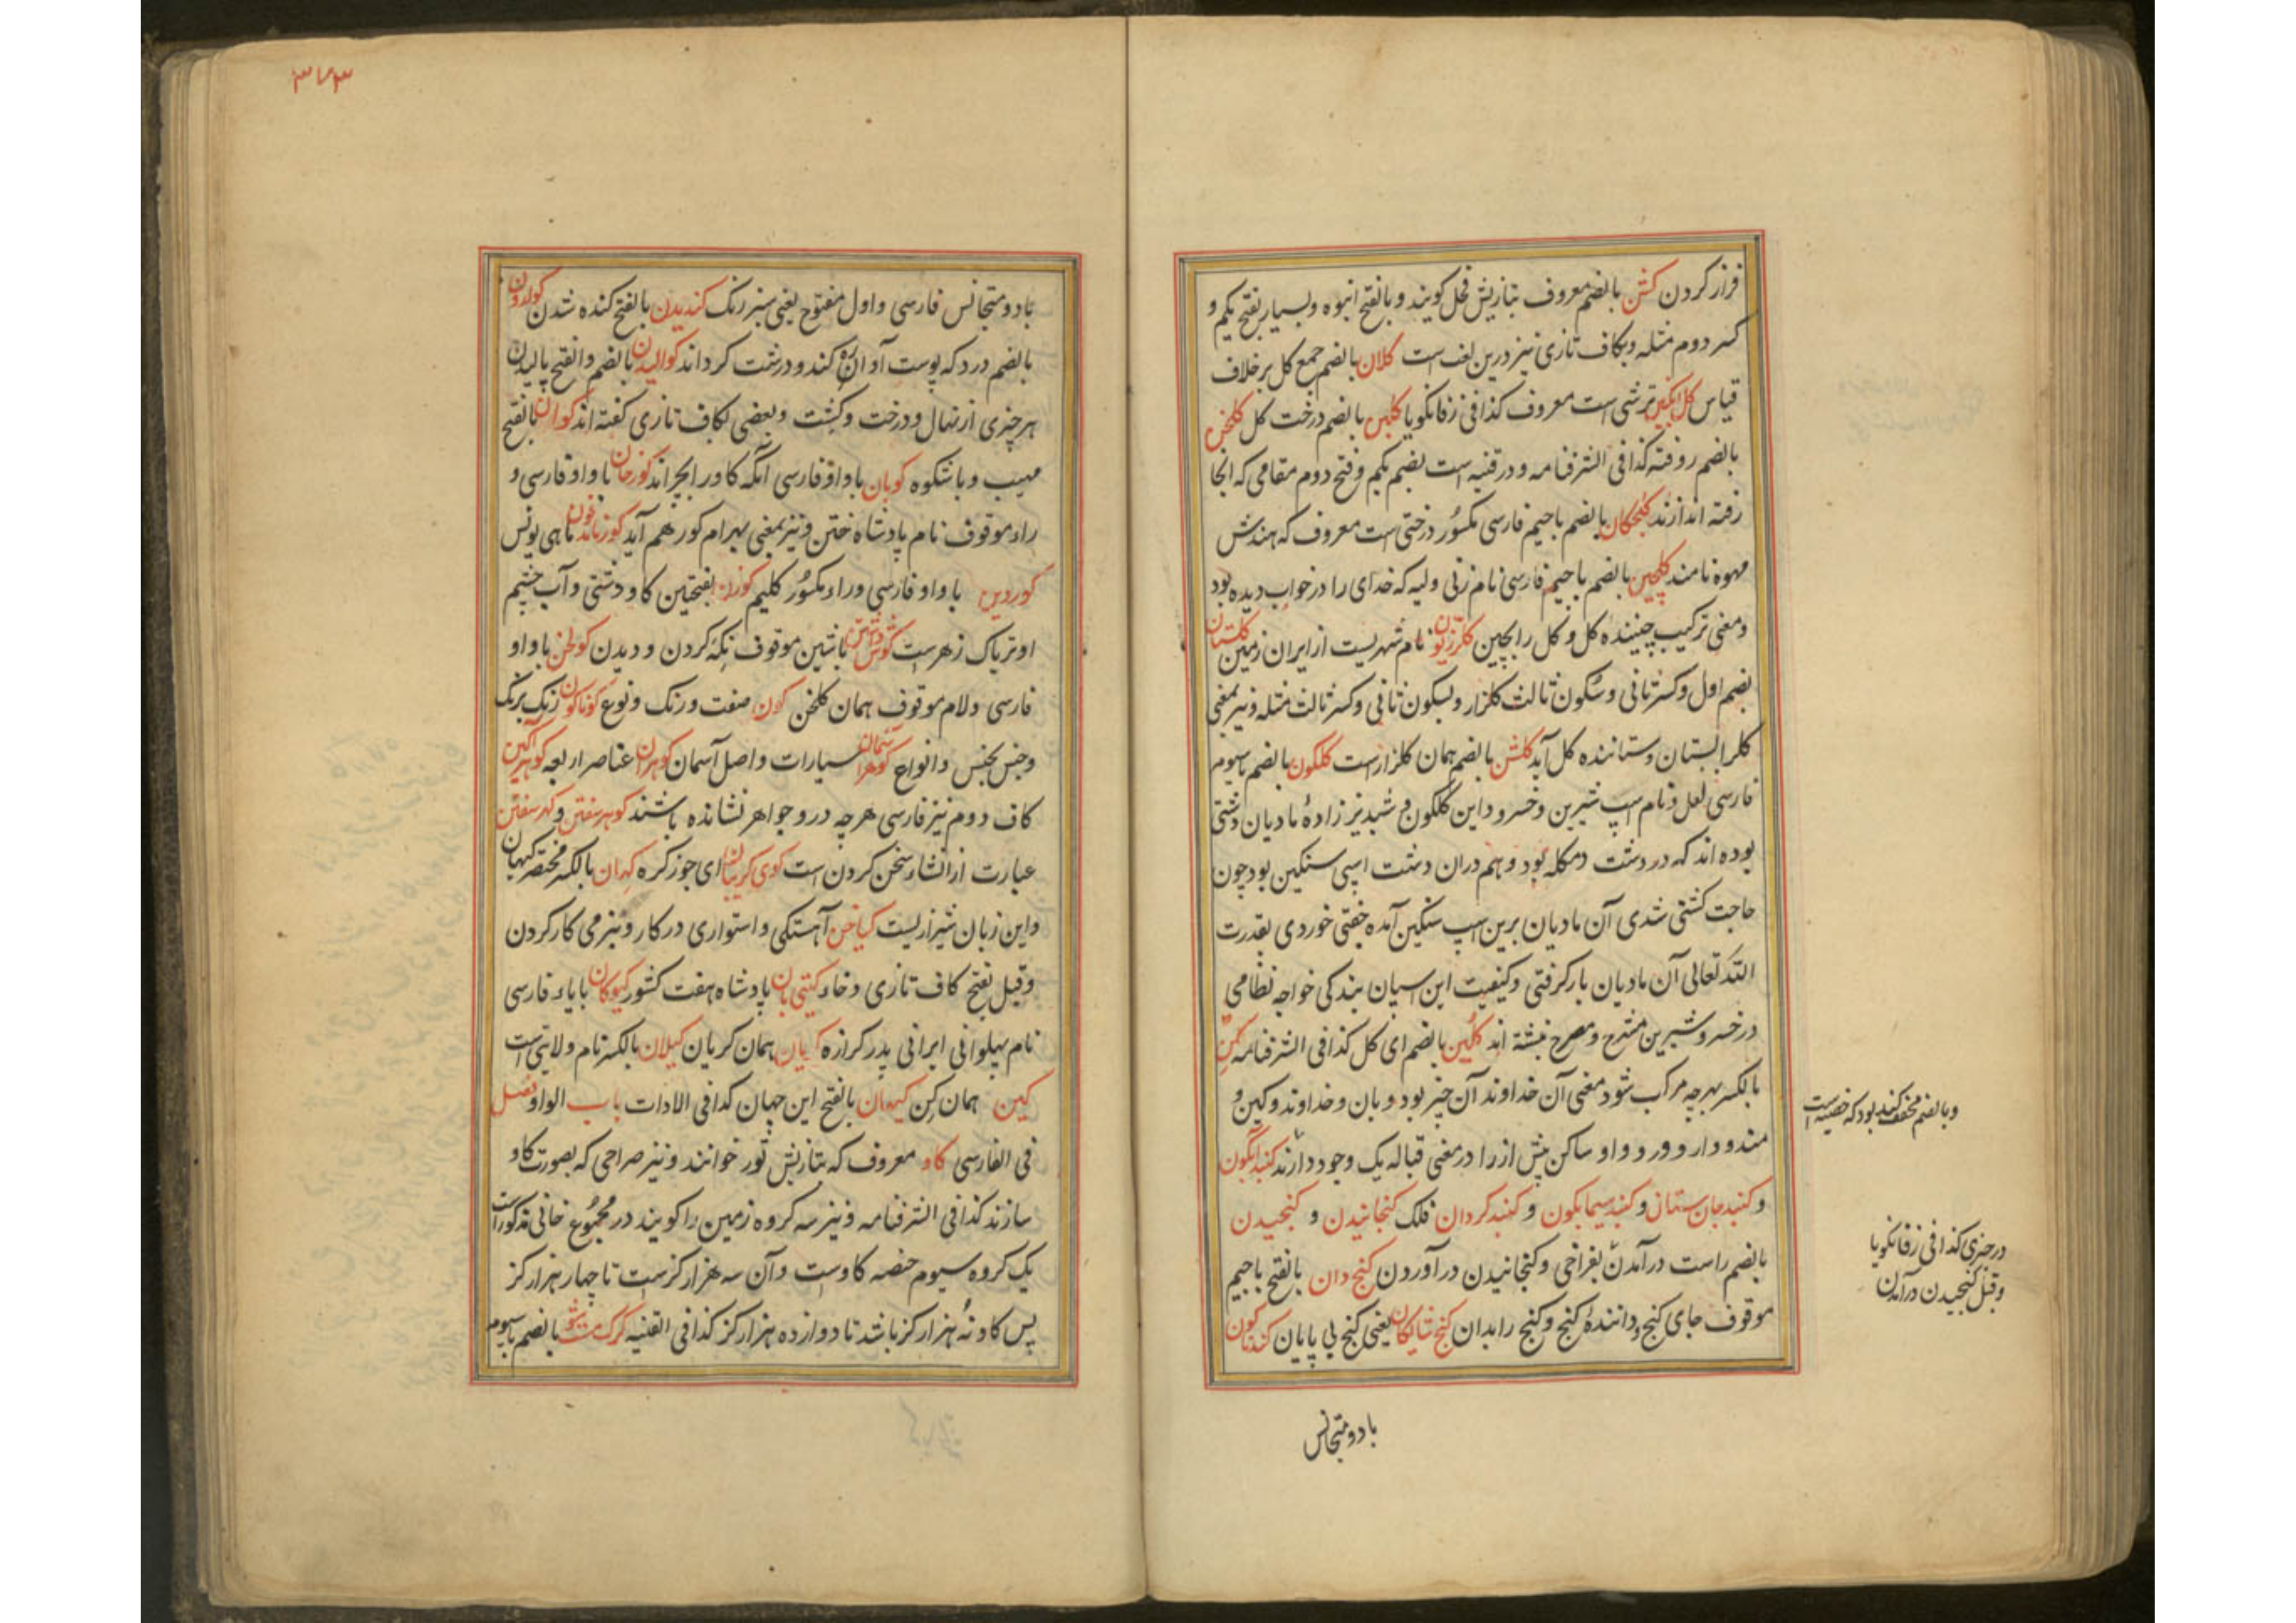 فراز کردن کشن بالضم معروف بتازیش فحل کویند و بالفتح انبوه و بسیار بفتح یکم و
کسر دوم مثله و بکاف تازی نیز درین لغت است کلان بالضم جمع کل برخلاف
قیاس کل انکبین ترشی است معروف کذا فی زفانکویا کلبن بالضم درخت کل کلخن
بالضم روفته کذا فی الشرفنامه و در قنیه است بضم یکم و فتح دوم مقامی که انجا
رفته اندازند کلچکان بالضم باجیم فارسی مکسور درختی است معروف که هندش
مهوه نامند کلچین بالضم باجیم فارسی نام زنی ولیه که خدای را در خواب دیده بود
ومعنی ترکیب چیننده کل و کل را بچین کلرزیون نام شهریست از ایران زمین کلستان
بضم اول و کسر ثانی و سکون ثالث کلزار و بسکون ثانی و کسر ثالث مثله و نیز بمعنی
کلرا بستان و ستاننده کل آید کلشن بالضم همان کلزار است کلکون بالضم با سیوم
فارسی لعل و نام اسپ شیرین و خسرو و این کلکون و شبدیز زادهٔ مادیان دشتی
بوده اند که در دشت دمکله بود و هم دران دشت اسپی سنکین بود چون
حاجت کشنی شدی آن مادیان برین اسپ سنکین آمده جفتی خوردی بقدرت
الله تعالی آن مادیان بار کرفتی و کیفیت این اسپان بندکی خواجه نظامی
در خسرو شیرین مشرح و مصرح نبشته اند کلین بالضم ای کل کذا فی الشرفنامه کن
بالکسر بهرچه مرکب شود معنی آن خداوند آن چیز بود و بان و خداوند و کین و
مند و دار و ور و واو ساکن پیش از را در معنی قباله یک وجود دارند کنبد آبکون
و کنبد جان ستان و کنبد سیمابکون و کنبد کردان فلک کنجانیدن و کنجیدن
بالضم راست درآمدن بفراخی و کنجانیدن درآوردن کنج دان بالفتح باجیم
موقوف جای کنج و دانندهٔ کنج و کنج را بدان کنج شایکان یعنی کنج بی پایان کندناکون
وبالضم مخفف کند بود که خصیه است
در چیزی کذا فی زفانکویا
وقیل کنجیدن درآمدن
با دو متجانس
۳۷۳
با دو متجانس فارسی و اول مفتوح یعنی سبز رنک کندیدن بالفتح کنده شدن
بالضم درد که پوست آواز کنده و درشت کرداند کوالیدن بالضم والفتح بالیدن
هر چیزی از نهال و درخت و کشت وبعضی بکاف تازی کفته اند کوان بالفتح
مهیب و باشکوه کوبان با واو فارسی آنکه کاو را بچراند کورخان با واو فارسی و
راء موقوف نام پادشاه ختن و نیز بمعنی بهرام کور هم آید ماهی یونس
کوردین با واو فارسی و راء مکسور کلیم کوزن بفتحتین کاو دشتی و آب چشم
او تریاک زهر است کوش داشتن با شین موقوف نکه کردن و دیدن کولخن با واو
فارسی و لام موقوف همان کلخن کون صفت و رنک و نوع کوناکون رنک برنک
و جنس بجنس و انواع سیارات و اصل آسمان کوهران عناصر اربعه کوهر آکین
کاف دوم نیز فارسی هرچه درو جواهر نشانده باشند کوهر سفتن و کهر سفتن
عبارت از انشاء سخن کردن است کوی کریبان ای جوز کره کهان بالکسر مختصر کیهان
و این زبان شیراز یست کیاخن آهستکی و استواری در کار و نیز می کار کردن
وقیل بفتح کاف تازی و خاء کیتی بان پادشاه هفت کشور کیوکان با یاء فارسی
نام پهلوانی ایرانی پدر کرازه کیان همان کریان کیلان بالکسر نام ولایتی است
کین همان کن کیهان بالفتح این جهان کذا فی الادات باب الواو فصل
فی الفارسی کاو معروف که بتازیش ثور خوانند و نیز صراحی که بصورت کاو
سازند کذا فی الشرفنامه و نیز سه کروه زمین را کویند در مجموع خانی مذکور است
یک کروه سیوم حصه کاو ست و آن سه هزار کز ست تا چهار هزار کز
پس کاو نه هزار کز باشد تا دوازده هزار کز کذا فی القنیه بالضم با سیوم